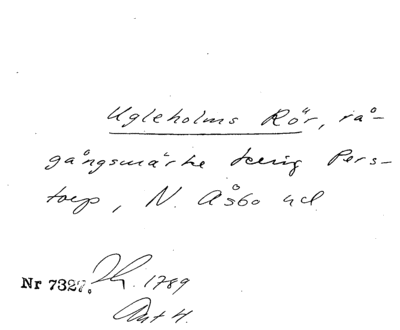 Ugleholms Rör, rå-
gångsmärke kring Pers-
torp, N. Åsbo hd
Nr 7327. 1789
Akt 4.